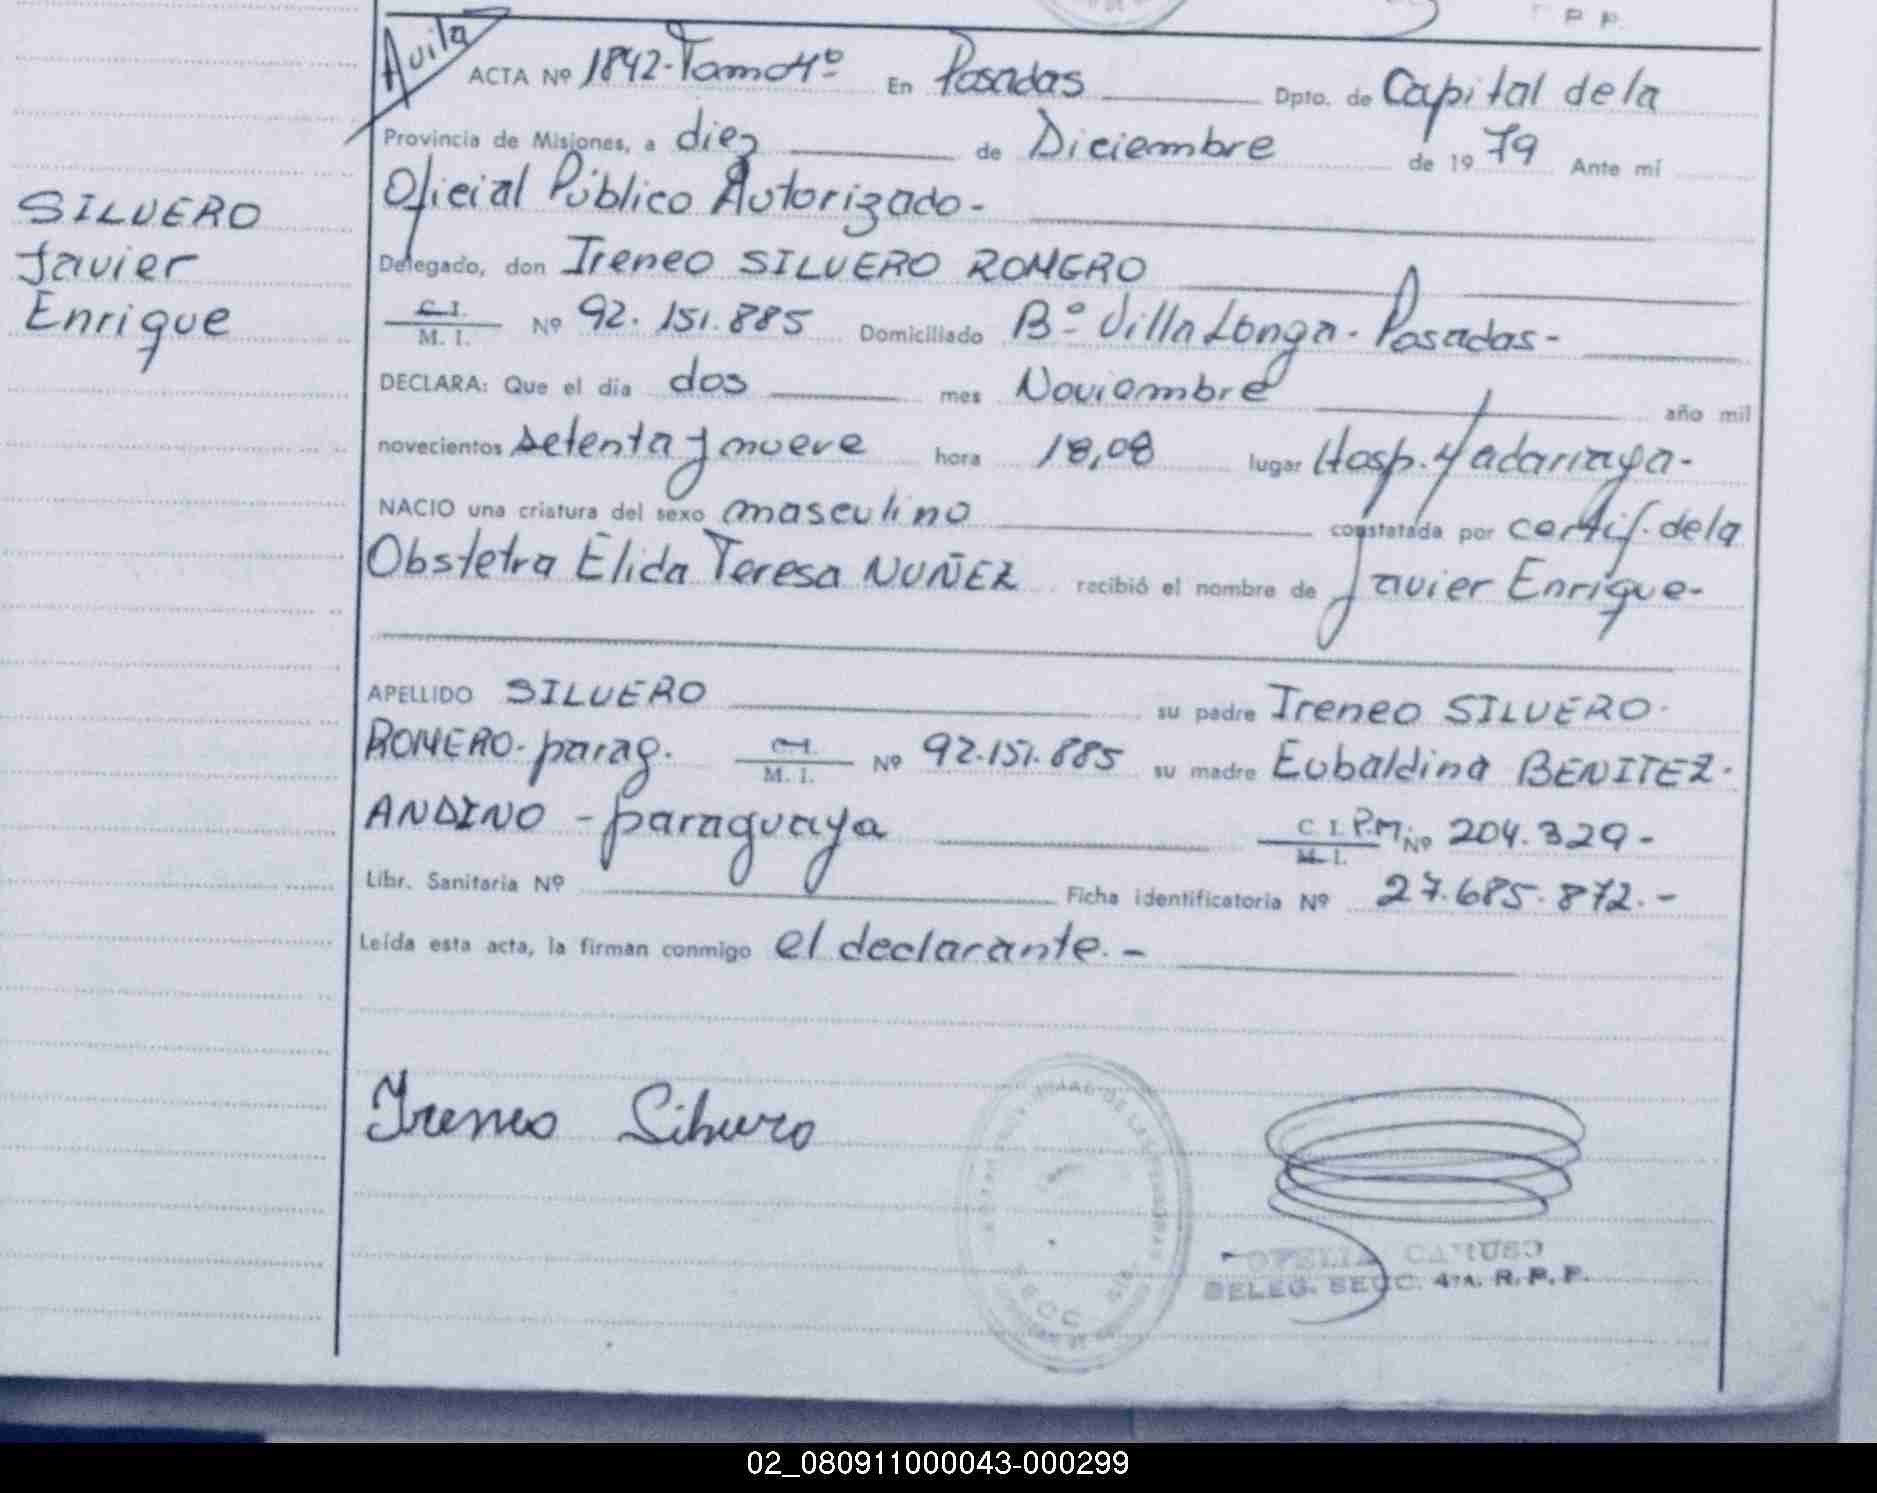 P. P.
Avila
ACTA Nº 1842-Tomo 4º En Posadas Dpto. de Capital de la
Provincia de Misiones, a diez de Diciembre de 19 79 Ante mí
Oficial Público Autorizado-
SILVERO
Javier
Enrique
Delegado, don Ireneo SILVERO ROMERO
C. I.
M. I. Nº 92.151.885 Domiciliado Bº Villa Longa-Posadas-
DECLARA: Que el día dos mes Noviembre año mil
novecientos setenta y nueve hora 18,08 lugar Hosp. Madariaga-
NACIO una criatura del sexo masculino constatada por certif. de la
Obstetra Elida Teresa NUÑEZ recibió el nombre de Javier Enrique-
APELLIDO SILVERO su padre Ireneo SILVERO-
ROMERO-parag. C. I.
M. I. Nº 92.151.885 su madre Eubaldina BENITEZ-
ANDINO -paraguaya C. I. P.M.
M. I. Nº 204.329-
Libr. Sanitaria Nº Ficha identificatoria Nº 27.685.872.-
Leída esta acta, la firman conmigo el declarante.-
Ireneo Silvero
OFELIA CARUSO
DELEG. SECC. 4TA. R. P. P.
02_080911000043-000299